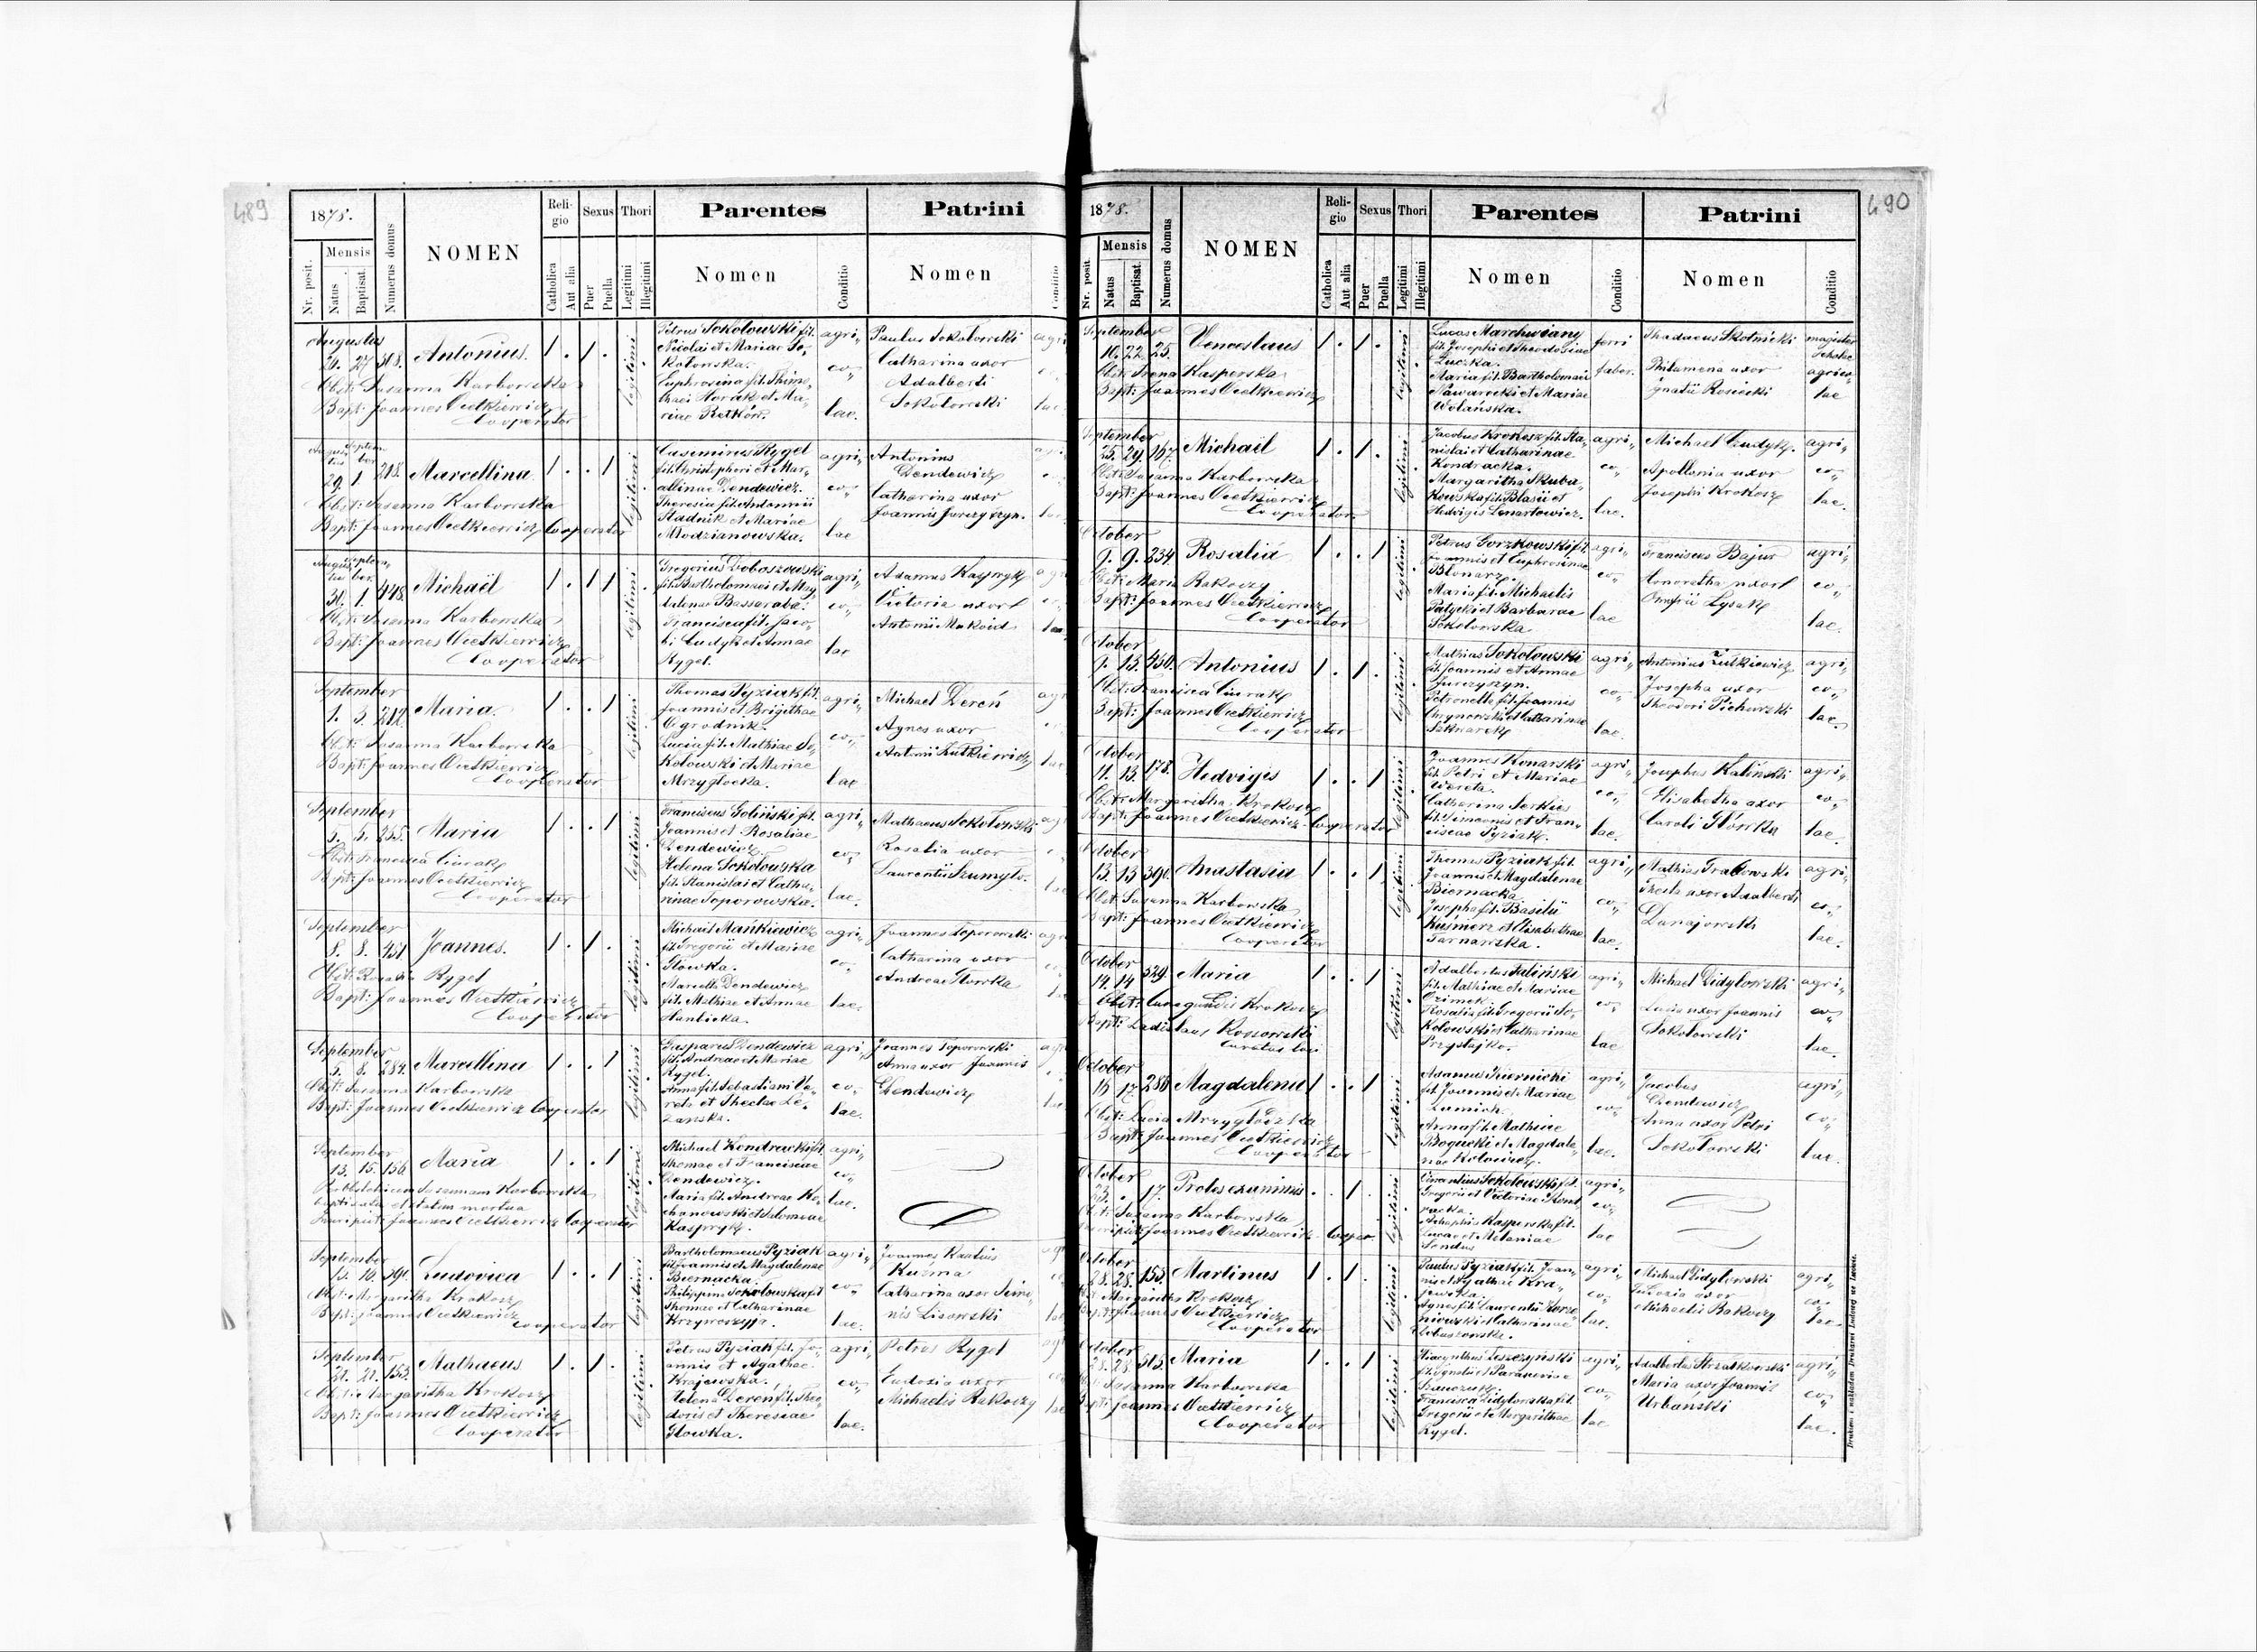 489
1878.
Nr. posit.
Mensis
Natus
Baptisat.
Numerus domus
NOMEN
Religio
Catholica
Aut alia
Sexus
Puer
Puella
Thori
Legitimi
Illegitimi
Parentes
Nomen
Conditio
Patrini
Nomen
Conditio
Augustus
26. 27 308. Antonius.
Obst: Susanna Karbowska
Bapt: Joannes Cietkiewicz
Cooperator
legitimi
Petrus Sokołowski fil.
Nicolai et Mariae So-
kołowska.
Euphrosina fil. Thimo-
thaei Horak et Ma-
riae
agri„
co„
lae.
Paulus Sokołowski
Catharina uxor
Adalberti
Sokołowski
29. 1 218. Marcellina
Obst: Susanna Karbowska
Bapt: Joannes Cietkiewicz Cooperator
legitimi
Casimirus Rygel
fil. Christophori et Mar-
Dendewicz.
Theresia fil. Antonii
Stadnik et Mariae
Młodzianowska.
agri„
co„
lae
Antonius
Dendewicz
Catharina uxor
Joannis Jurczyszyn.
30. 1. 448. Michaël
Obst: Susanna Karbowska
Bapt: Joannes Cietkiewicz
Cooperator
legitimi
Gregorius Doboszowski
fil. Bartholomaei et Mag
dalenae Bassaraba.
Francisca fil. Jaco-
bi Ludyk et Annae
Rygel.
agri„
co„
lae
Adamus Kaspryk
Victoria uxor
Antonii
September
1. 3. 212. Maria.
Obst: Susanna Karbowska
Bapt: Joannes Cietkiewicz
Cooperator
legitimi
Thomas Pyziak fil.
Joannis et Brigithae
Ogrodnik.
Lucia fil. Mathiae So-
kołowski et Mariae
Mrzygłocka.
agri„
co„
lae
Michael Dereń
Agnes uxor
Antonii Lutkiewicz
September
5. 5. 255. Maria
Obst: Francisca Ciurak
Bapt: Joannes Cietkiewicz
Cooperator
legitimi
Franciscus Goliński fil.
Joannis et Rosaliae
Dendewicz.
Helena Sokołowska
fil. Stanislai et Catha-
rinae Toporowska.
agri„
co„
lae.
Mathaeus Sokołowski
Rosalia uxor
Laurentii Szumyło.
September
8. 8. 451. Joannes.
Obst: Rosalia Rygel
Bapt: Joannes Cietkiewicz
Cooperator
legitimi
Michaël Mańkiewicz
fil. Gregorii et Mariae
Głowka.
Marcella Dendewicz
fil. Mathiae et Annae
agri„
co„
lae.
Joannes Toporowski
Catharina uxor
Andreae Głowka
September
5. 8. 284. Marcellina
Obst: Susanna Karbowska
Bapt: Joannes Cietkiewicz Cooperator
legitimi
Gasparus Dendewicz
fil. Andreae et Mariae
Rygel.
Anna fil. Sebastiani
et Theclae
agri„
co„
lae.
Joannes Toporowski
Anna uxor Joannis
Dendewicz
September
13. 15. 156. Maria
Susannam Karbowska
baptisata et statim mortua
Joannes Cietkiewicz Cooperator
legitimi
Michael Kondracki fil.
Thomae et Franciscae
Dendewicz.
Maria fil. Andreae Ko-
chanowski et Salomeae
Kaspryk.
agri„
co„
lae.
September
15. 16. 391. Ludovica
Obst: Margaritha Krokosz
Bapt: Joannes Cietkiewicz
cooperator
legitimi
Bartholomaeus Pyziak
fil. Joannis et Magdalenae
Biernacka.
Philippina Sokołowska fil
Thomae et Catharinae
agri„
co„
lae.
Joannes
Kuźma
Catharina uxor Simo-
nis Lisowski
September
21. 22. 153. Mathaeus
Obst: Margaritha Krokosz
Bapt: Joannes Cietkiewicz
Cooperator
legitimi
Petrus Pyziak fil. Jo-
annis et Agathae
Krajewska.
Helena Dereń fil. Theo-
doris et Theresiae
Głowka.
agri„
co„
lae.
Petrus Rygel
Eudoxia uxor
Michaelis Rakoczy
490
1878.
Nr. posit.
Mensis
Natus
Baptisat.
Numerus domus
NOMEN
Religio
Catholica
Aut alia
Sexus
Puer
Puella
Thori
Legitimi
Illegitimi
Parentes
Nomen
Conditio
Patrini
Nomen
Conditio
September
10. 22. 25. Venceslaus
Obst: Irena Kasperska
Bapt: Joannes Cietkiewicz
legitimi
Lucas Marchwiany
fil. Josephi et Theodosiae
Łuczka.
Maria fil. Bartholomaei
Nawarecki et Mariae
Wolańska.
ferri
faber.
Thadaeus Skotnicki
Philomena uxor
Ignatii Rosiecki
magister
scholae
agrico„
lae
September
25. 29. 167. Michaël
Obst: Susanna Karbowska
Bapt: Joannes Cietkiewicz
Cooperator
legitimi
Jacobus Krokosz fil. Sta-
nislai et Catharinae
Kondracka.
Margaritha Skuba-
kowska fil. Blasii et
Hedvigis Lenartowicz.
agri„
co„
lae.
Michael Ludyk.
Apollonia uxor
Josephi Krokosz
agri„
co„
lae.
October
9. 9. 234. Rosalia
Obst: Maria Rakoczy
Bapt: Joannes Cietkiewicz
Cooperator
legitimi
Petrus Gorzkowski fil.
Joannis et Euphrosinae
Błonarz.
Maria fil. Michaelis
Patycki et Barbarae
Sokołowska
agri„
co„
lae
Franciscus Bajur
Honoratha uxor
Onufrii Łysak
agri„
co„
lae.
October
9. 13. 450. Antonius
Obst: Francisca Ciurak
Bapt: Joannes Cietkiewicz
Cooperator
legitimi
Mathias Sokołowski
fil. Joannis et Annae
Jurczyszyn.
Petronella fil. Joannis
Chrynowski et Catharinae
agri„
co„
lae.
Antonius Lutkiewicz
Josepha uxor
Theodori Pichurski
agri„
co„
lae.
October
11. 13. 178. Hedvigis
Obst: Margaritha Krokosz
Bapt: Joannes Cietkiewicz Cooperator
legitimi
Joannes Konarski
fil. Petri et Mariae
Wereta.
Catharina Serkies
fil. Simeonis et Fran-
ciscae Pyziak.
agri„
co„
lae.
Josephus Kaliński
Elisabetha uxor
Caroli Głowka
agri„
co„
lae.
October
13. 13 391. Anastasia
Obst: Susanna Karbowska
Bapt: Joannes Cietkiewicz
Cooperator
legitimi
Thomas Pyziak fil.
Joannis et Magdalenae
Biernacka.
Josepha fil. Basilii
Kuśmierz et Elisabethae
Tarnawska.
agri„
co„
lae.
Mathias Grabowski
Thecla uxor Adalberti
Dunajowski
agri„
co„
lae.
October
14. 14 329. Maria
Obst: Cunegundis Krokosz
Bapt: Ladislaus Rossowski
Curatus loci
legitimi
Adalbertus Faliński
fil. Mathiae et Mariae
Ozimek.
Rosalia fil. Gregorii So-
kołowski et Catharinae
Przystajko.
agri„
co„
lae
Michael Didyłowski
Lucia uxor Joannis
Sokołowski
agri„
co„
lae.
October
16 17. 286 Magdalena
Obst: Lucia Mrzygłodzka
Bapt: Joannes Cietkiewicz
Cooperator
legitimi
Adamus Kiernicki
fil. Joannis et Mariae
Anna fil. Mathiae
Bogucki et Magdale-
nae Kołowicz.
agri„
co„
lae.
Jacobus
Dendewicz
Anna uxor Petri
Sokołowski
agri„
co„
lae.
October
23. . 17. Proles exanimis
Obst: Susanna Karbowska
Joannes Cietkiewicz Cooper.
legitimi
Laurentius Sokołowski fil.
Gregorii et Victoriae Kond
racka.
Kasperska fil.
Lucae et Melaniae
Sendus
agri„
co„
lae
October
28. 28. 153. Martinus
Obst: Margaritha Krokosz
Bapt: Joannes Cietkiewicz
Cooperator
legitimi
Paulus Pyziak fil. Joan-
nis et Agathae Kra-
jewska.
Agnes fil. Laurentii Korze
niowski et Catharinae
agri„
co„
lae.
Michael Didyłowski
Eudoxia uxor
Michaelis Rakoczy
agri„
co„
lae.
October
28. 28. 313 Maria
Obst: Susanna Karbowska
Bapt: Joannes Cietkiewicz
Cooperator
legitimi
Hiacynthus Leszczyński
fil. Ignatii et Parasceviae
Francisca Didyłowska fil.
Gregorii et Margarithae
Rygel.
agri„
co„
lae
Adalbertus Strzałkowski
Maria uxor Joannis
Urbański
agri„
co„
lae.